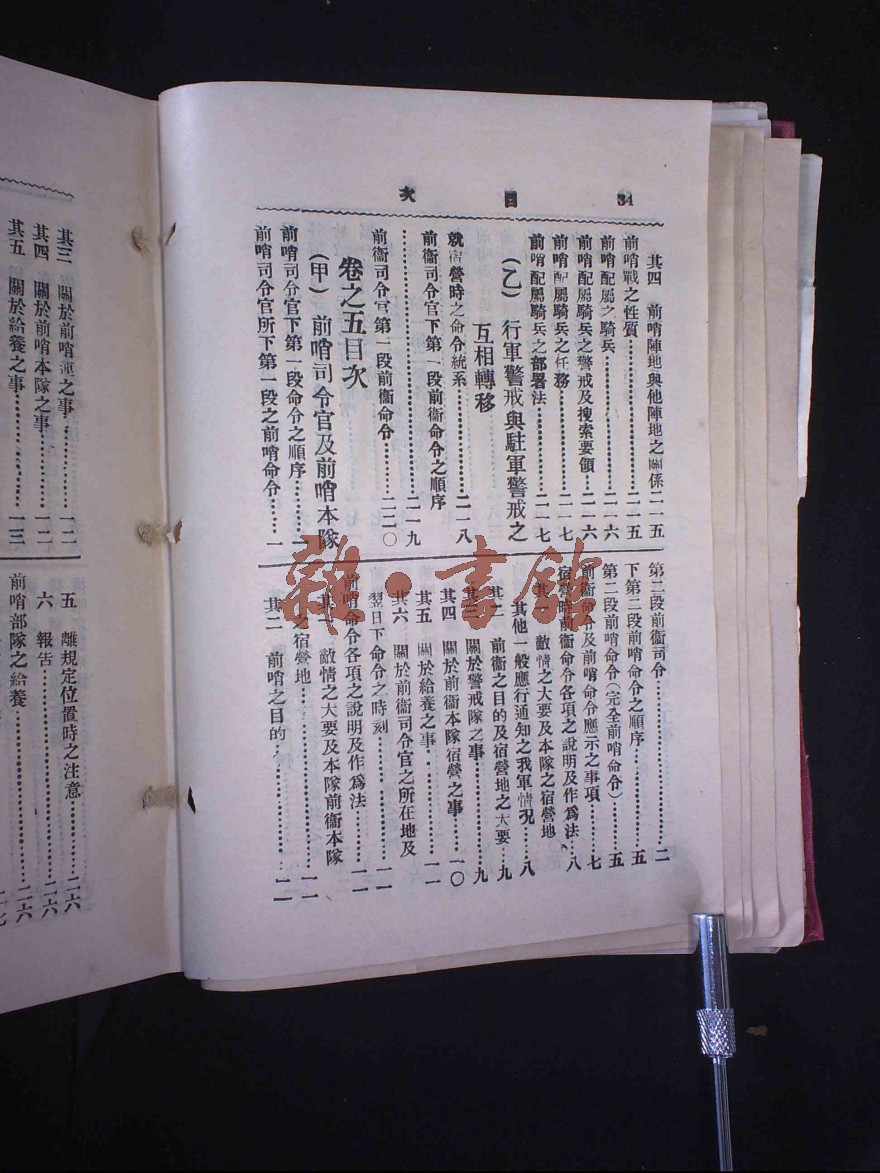 34 目次
其四 前哨陣地與他陣地之關係二一五
前哨戰之性質…………二一五
前哨配屬之騎兵…………二一六
前哨配屬騎兵之警戒及搜索要領…二一六
前哨配屬騎兵之任務…………二一七
前哨配屬騎兵之部署法…………二一七
(乙) 行軍警戒與駐軍警戒之
互相轉移
就宿營時之命令統系…………二一八
前衞司令官下第一段前衞命令之順序
…………二一九
前衞司令官第一段前衞命令…………二二〇
卷之五目次
(甲) 前哨司令官及前哨本隊
前哨司令官下第一段命令之順序…………一
前哨司令官所下第一段之前哨命令……一
第二段前衞司令…………二
下第二段前哨命令之順序…………五
第二段前哨命令(完全前哨命令)…五
前衞命令及前哨命令應示之事項…七
宿營時前衞命令各項之說明及作爲法、八
其一 敵情之大要及本隊之宿營地
其他一般應行通知之我軍情況…八
其二 前衞之目的及宿營地之大要…九
其三 關於警戒隊之事…………九
其四 關於前衞本隊宿營之事…………一〇
其五 關於給養之事…………一一
其六 關於前衞司令官之所在地及
翌日下命令之時刻…………一一
前哨命令各項之說明及作爲法…………一一
其一 敵情之大要及本隊前衞本隊
之宿營地…………一一
其二 前哨之目的…………一一
其三 關於前哨連之事…………一二
其四 關於前哨本隊之事…………一二
其五 關於給養之事…………一三
五 離規定位置時之注意…………二六
六 報告…………二六
前哨部隊之給養…………二六
雜·書館